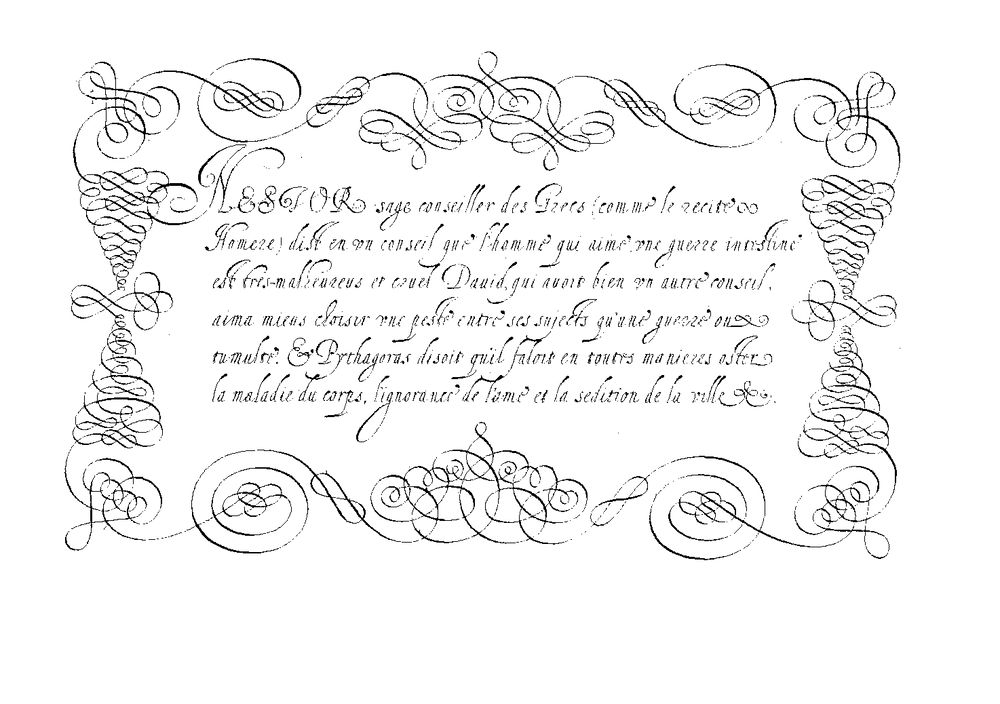 NESTOR sage conseiller des Grecs (comme le recite
Homere) dist en vn conseil que l'homme qui aime vne guerre intestine
est tres-malheureus et cruel Dauid, qui auoit bien vn autre conseil,
aima mieus choisir vne peste entre ses sujects qu'une guerre ou
tumulte. & Pythagoras disoit qu'il faloit en toutes manieres oster
la maladie du corps, l'ignorance de l'ame et la sedition de la ville &c.